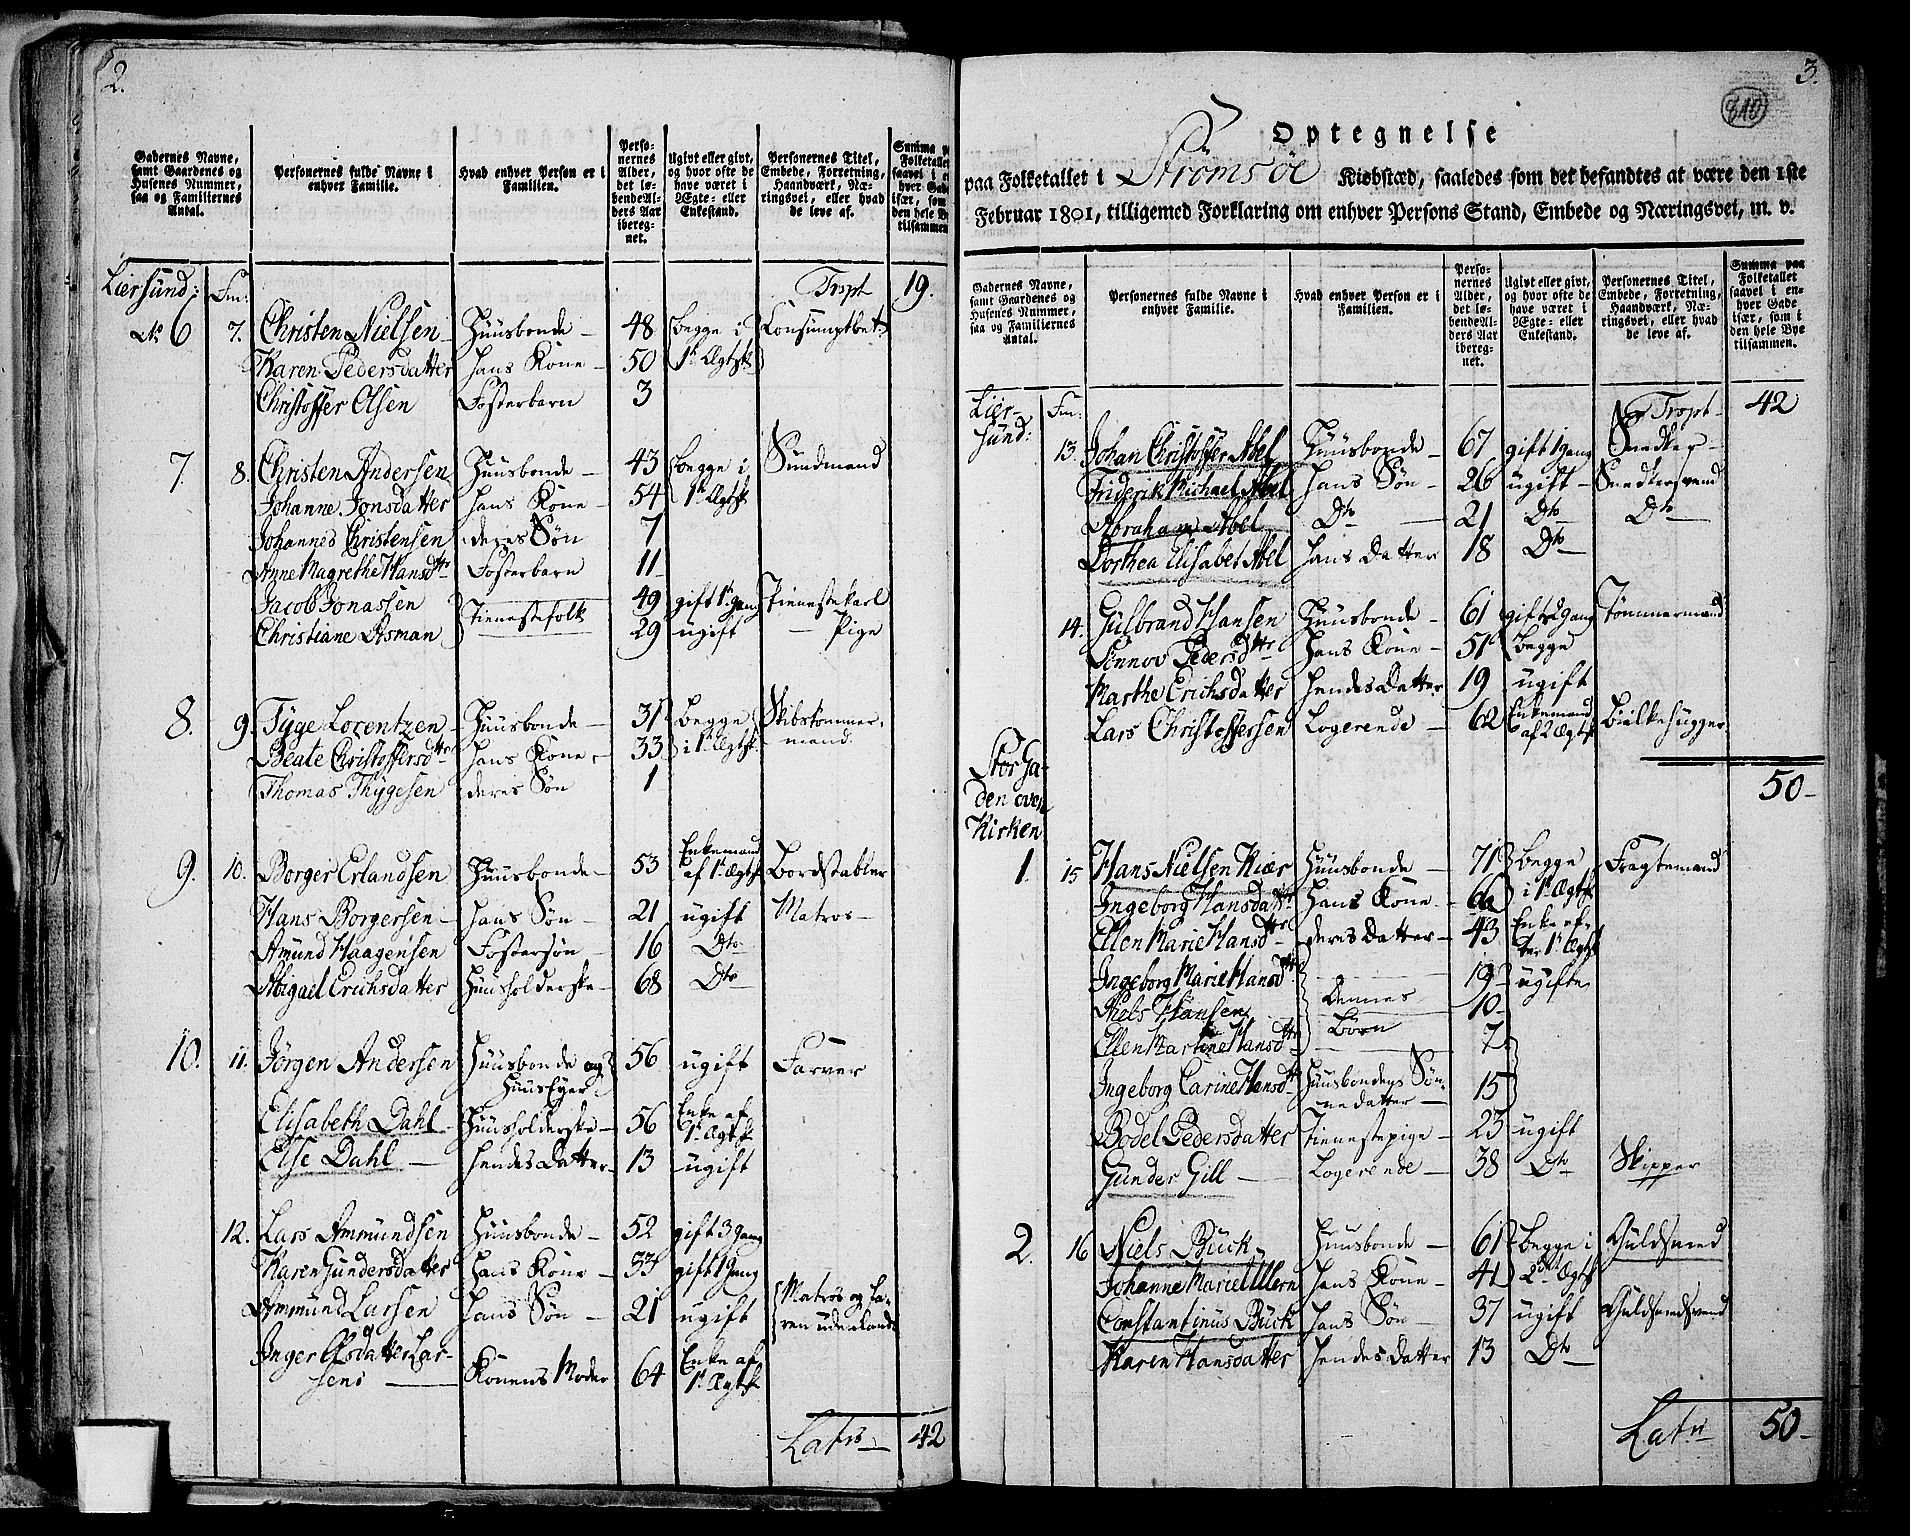 2.
Gadernes Navne, samt Gaardenes og Husenes Nummer, saa og Familiernes Antal.
Personernes fulde Navne i enhver Familie.
Hvad enhver Person er i Familien.
Personernes Alder, det løbende Alders Aar iberegnet.
Ugivt eller givt, og hvor ofte de have været i Ægte- eller Enkestand.
Personernes Titel, Embede, Forretning, Haandværk, Næringsvei, eller hvad de leve af.
Summa paa Folketallet saavel i enhver Gade især, som i den hele Bye tilsammen
Liersund: Fm: Trspt 19.
No 6 7. Christen Nielsen Huusbonde 48 begge i Consumptbet.
Karen Pedersdatter hans Kone 50 1t Ægtsk
Christoffer Olsen Fosterbarn 3
7. 8. Christen Andersen Huusbonde 43 begge i Sundmand
Johanne Jonsdatter hans Kone 54 1t Ægtsk
Johannes Christensen deres Søn 7
Anne Magrethe Hansdttr Fosterbarn 11
Jacob Jonassen Tienestefolk 49 gift 1t gang Tienestekarl
Christiane Asman 29 ugift — Pige
8. 9. Tyge Lorentzen Huusbonde 31 begge Skibstømmer-
Beate Christoffersdttr hans Kone 33 i 1t Ægtsk. mand.
Thomas Thygesen deres Søn 1
9. 10. Borger Erlandsen Huusbonde 53 Enkemand af 1t Ægtsk Bordstabler
Hans Borgersen hans Søn 21 ugift Matros
Amund Haagensen Fostersøn 16 Dto
Abigael Erichsdatter Huusholderske 68 Dto
10. 11. Jörgen Andersen Huusbonde og 56 ugift Farver
HuusEyer
Elisabeth Dahl Huusholderske 56 Enke af 1t Ægtsk
Else Dahl hendes Datter 13 ugift
12. Lars Ammundsen Huusbonde 52 gift 3 gang
Karen Gundersdatter hans Kone 33 gift 1 gang
Ammund Larsen hans Søn 21 ugift Matros og fa-
ren udenlands
Anger Olsdatter Lar-
sens Konens Moder 64 Enke af 1t Ægtsk
Latus 42
3.
810
Optegnelse
paa Folketallet i Strömsöe Kiøbstæd, saaledes som det befandtes at være den 1ste
Februar 1801, tilligemed Forklaring om enhver Persons Stand, Embede og Næringsvei, m. v.
Gadernes Navne, samt Gaardenes og Husenes Nummer, saa og Familiernes Antal.
Personernes fulde Navne i enhver Familie.
Hvad enhver Person er i Familien.
Personernes Alder, det løbende Alders Aar iberegnet.
Ugivt eller givt, og hvor ofte de have været i Ægte- eller Enkestand.
Personernes Titel, Embede, Forretning, Haandværk, Næringsvei, eller hvad de leve af.
Summa paa Folketallet saavel i enhver Gade især, som i den hele Bye tilsammen.
Lier- Fm: Trspt 42
sund:
13. Johan Christoffer Abel Huusbonde 67 gift 1 gang Snedker
Friderik Michael Abel hans Søn 26 ugift Snedkersvend
Abraham Abel Dto 21 Dto Dto
Dorthea Elisabet Abel hans Datter 18 Dto
14. Gulbrand Hansen Huusbonde 61 gift 2 gang Tømmermand
Sinnov Pedersdttr hans Kone 51 begge
Marthe Erichsdatter hendes Datter 19 ugift
Lars Christoffersen Logerende 62 Enkemand af 2 Ægtsk Bielkehugger
50
Storga-
den oven
Kirken
1. 15 Hans Nielsen Kiær Huusbonde 71 begge Fragtemand
Ingeborg Hansdattr hans Kone 62 i 1t Ægtsk
Ellen Marie Hansdttr deres Datter 43 Enke ef-
ter 1t Ægtsk
Ingeborg Marie Hansdttr 19 ugifte
Niels Hansen Dennes 10
Ellen Martine Hansdttr Børn 7
Ingeborg Carine Hansdttr Huusbondens Søn- 15
nedatter
Bodel Pedersdatter Tienestepige 23 ugift
Gunder Gill Logerende 38 Dto Skipper
2. 16 Niels Buck Huusbonde 61 begge i Guldsmed
Johanne Marie Ullern hans Kone 41 2det Ægtsk
Constantinus Buck hans Søn 37 ugift Guldsmedsvend
Karen Hansdatter hendes Datter 13 Dto
Latus 50